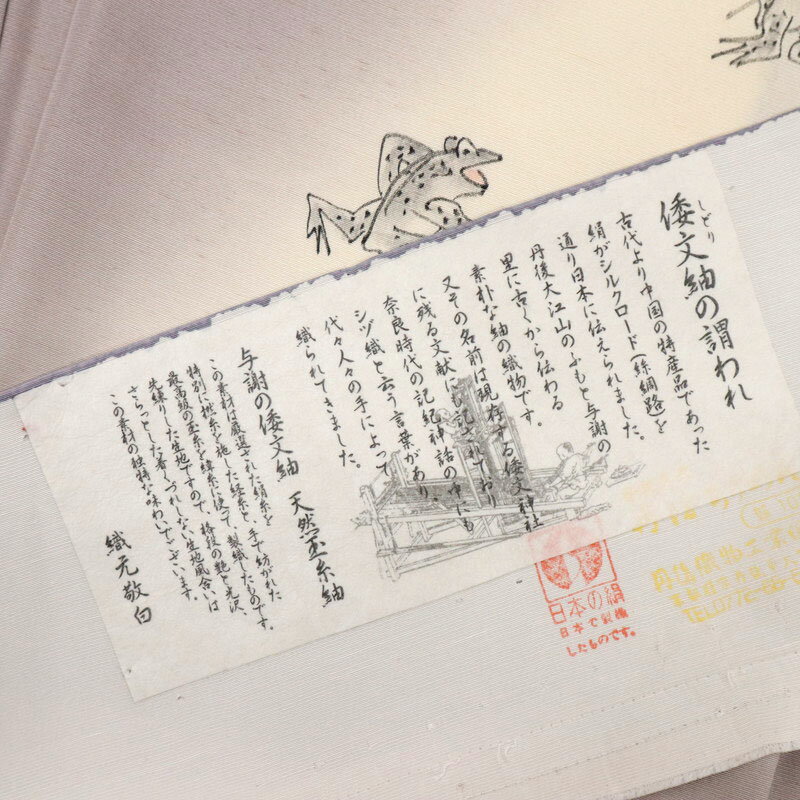 しどり
倭文紬の謂われ
古代より中国の特産品であった
絹がシルクロード(絲綢路)を
通り日本に伝えられました。
丹後大江山のふもと与謝の
里に古くから伝わる
素朴な紬の織物です。
又その名前は現存する倭文神社
に残る文献にも記されており
奈良時代の記紀神話の中にも
シヅ織と云う言葉があり、
代々人々の手によって
織られてきました。
与謝の倭文紬 天然玉糸紬
この素材は厳選された絹糸を
特別に撚糸を施した経糸と、手で紡がれた
最高級の玉糸を緯糸に使って、製織したものです。
先練りした生地ですので、格段の艶と光沢、
さらっとした着くづれしない生地風合いは
この素材の独特な味わいでございます。
織元敬白
日本の絹
日本で製織
したものです。
TEL0772